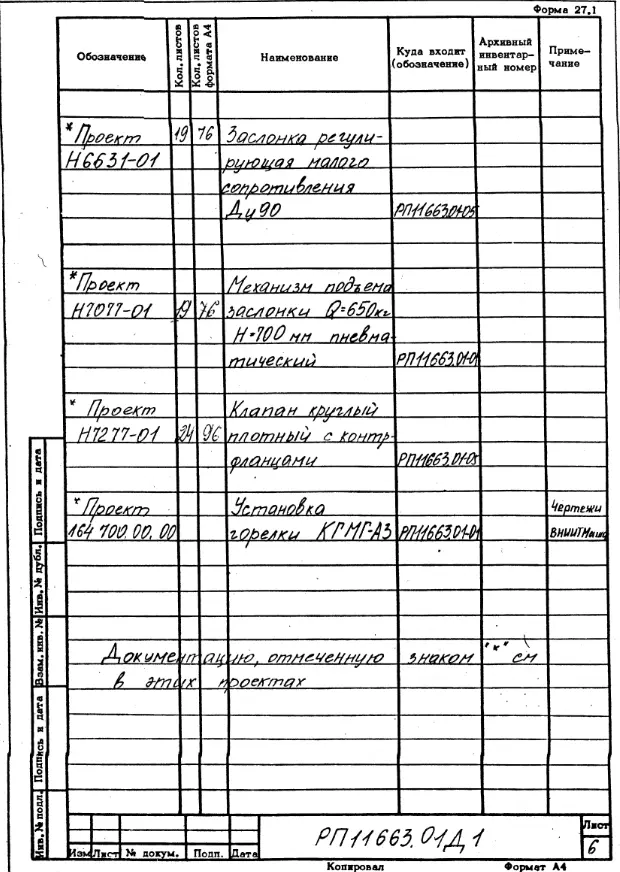 Форма 27.1
Обозначение Кол. листов Кол. листов формата А4 Наименование Куда входит (обозначение) Архивный инвентарный номер Примечание
*Проект 19 76 Заслонка регули-
Н6631-01 рующая малого
сопротивления
Ду90 РП11663.01-05
*Проект Механизм подъема
Н7077-01 19 76 заслонки Q=650кг
Н=700 мм пневма-
тический РП11663.01-01
* Проект Клапан круглый
Н7277-01 24 96 плотный с контр-
фланцами РП11663.01-05
* Проект Установка Чертежи
164 700.00.00 горелки КГМГ-А3 РП11663.01-01 ВНИИТМаш
Документацию, отмеченную знаком "*" см
в этих проектах
Подпись и дата
Инв. № дубл.
Взам. инв. №
Подпись и дата
Инв. № подл.
РП11663.01Д1
Лист
6
Изм Лист № докум. Подп. Дата
Копировал Формат А4